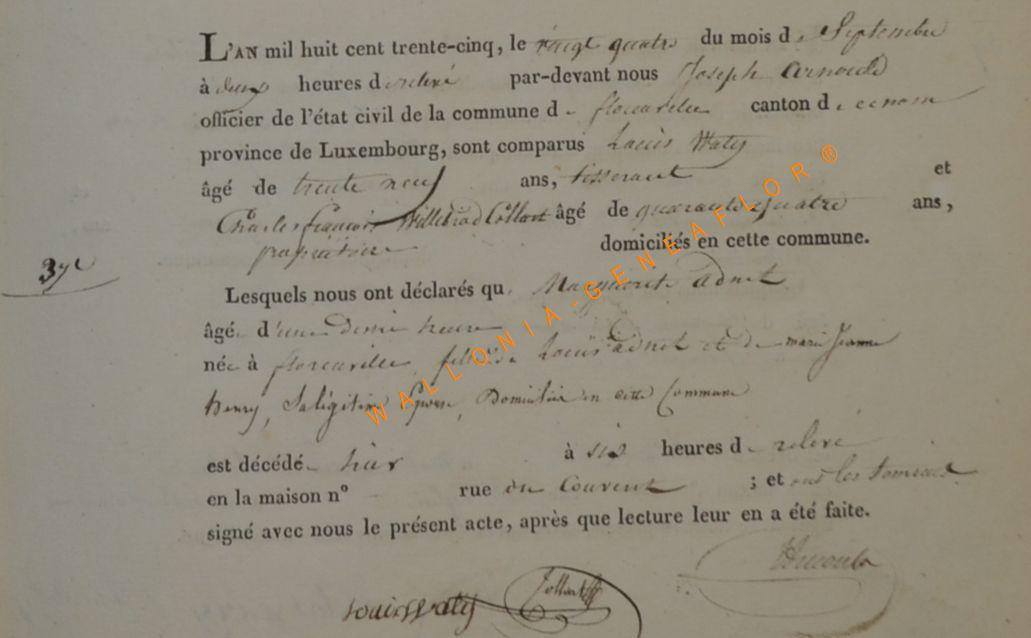 L'AN mil huit cent trente-cinq, le vingt quatre du mois de Septembre
à deux heures de relevé par-devant nous Joseph Arnould
officier de l'état civil de la commune de florenville canton de
province de Luxembourg, sont comparus Louis Waty
âgé de trente neuf ans, tisserant et
Charles françois Willebrod Collart âgé de quarante quatre ans,
propriétaire domiciliés en cette commune.
37e
Lesquels nous ont déclarés qu. Marguerite adnet
âgée d'une demie heure
née à florenville, fille de Louis adnet et de marie Jeanne
henry, Sa légitime Epouse, Domiciliée en cette Commune
est décédée hier à six heures de relevé
en la maison nº rue du Couvent ; et ont les temoins
signé avec nous le présent acte, après que lecture leur en a été faite.
Louis Waty Collart
WALLONIA-GENEAFLOR®